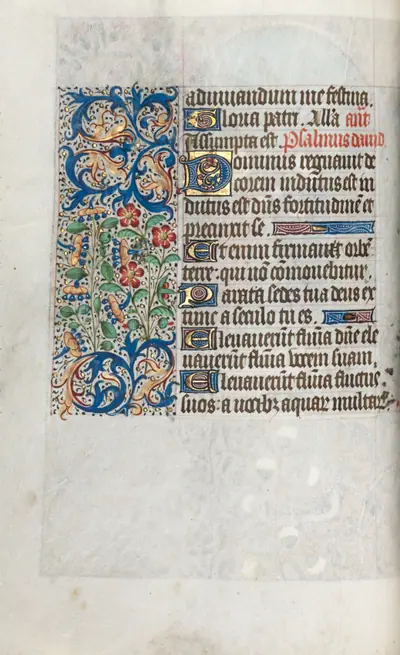 adiuuandum me festina.
Gloria patri. Alla añ
Assumpta est. Psalmus dauid
Dominus regnauit de
corem indutus est in
dutus est dñs fortitudinē et
precinxit se.
Etenim firmauit orbē
terre: qui nō comouebitur.
Parata sedes tua deus ex
tunc a seculo tu es.
Eleuauerūt flumīa dñe ele
uauerūt flumīa vocem suam.
Eleuauerūt flumīa fluctus
suos: a uocibz aquar multar